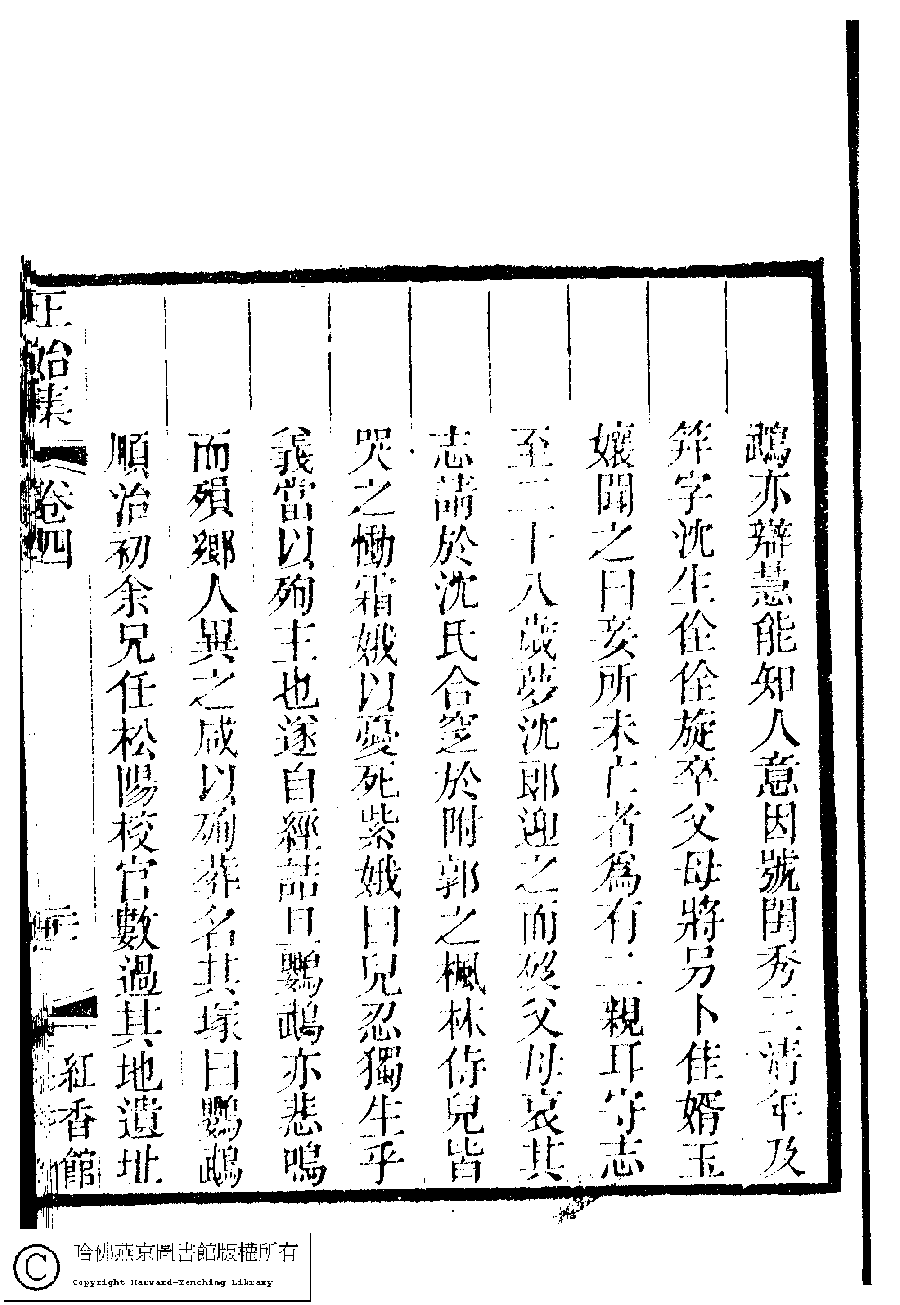 鵡亦辯慧能知人意因號閨秀三清年及
笄字沈生佺佺旋卒父母將另卜佳婿玉
孃聞之曰妾所未亡者爲有二親耳守志
至二十八歲夢沈郎迎之而殁父母哀其
志請於沈氏合窆於附郭之楓林侍兒皆
哭之慟霜娥以憂死紫娥曰兒忍獨生乎
義當以殉主也遂自經詰旦鸚鵡亦悲鳴
而殞鄉人異之咸以殉葬名其塚曰鸚鵡
順治初余兄任松陽校官數過其地遺址
正始集
卷四
三
紅香館
哈佛燕京圖書館版權所有
Copyright Harvard-Yenching Library